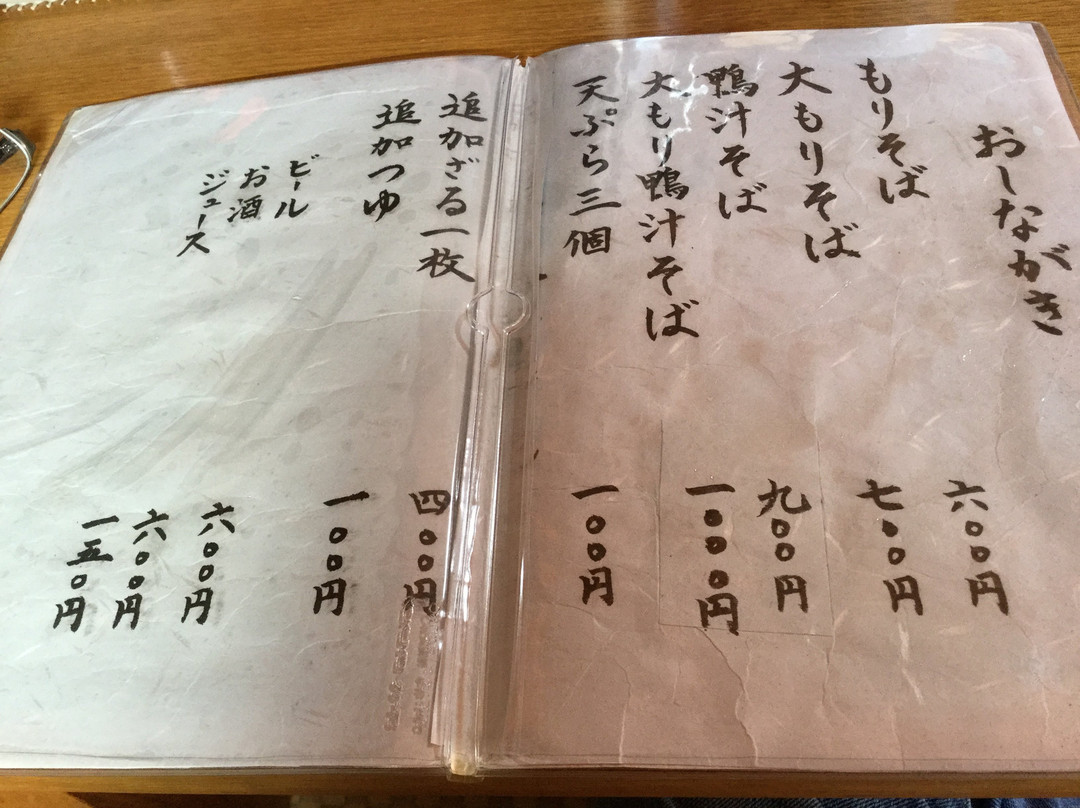 おしながき
もりそば 六〇〇円
大もりそば 七〇〇円
鴨汁そば 九〇〇円
大もり鴨汁そば 一〇〇〇円
天ぷら三個 一〇〇円
追加ざる一枚 四〇〇円
追加つゆ 一〇〇円
ビール 六〇〇円
お酒 六〇〇円
ジュース 一五〇円